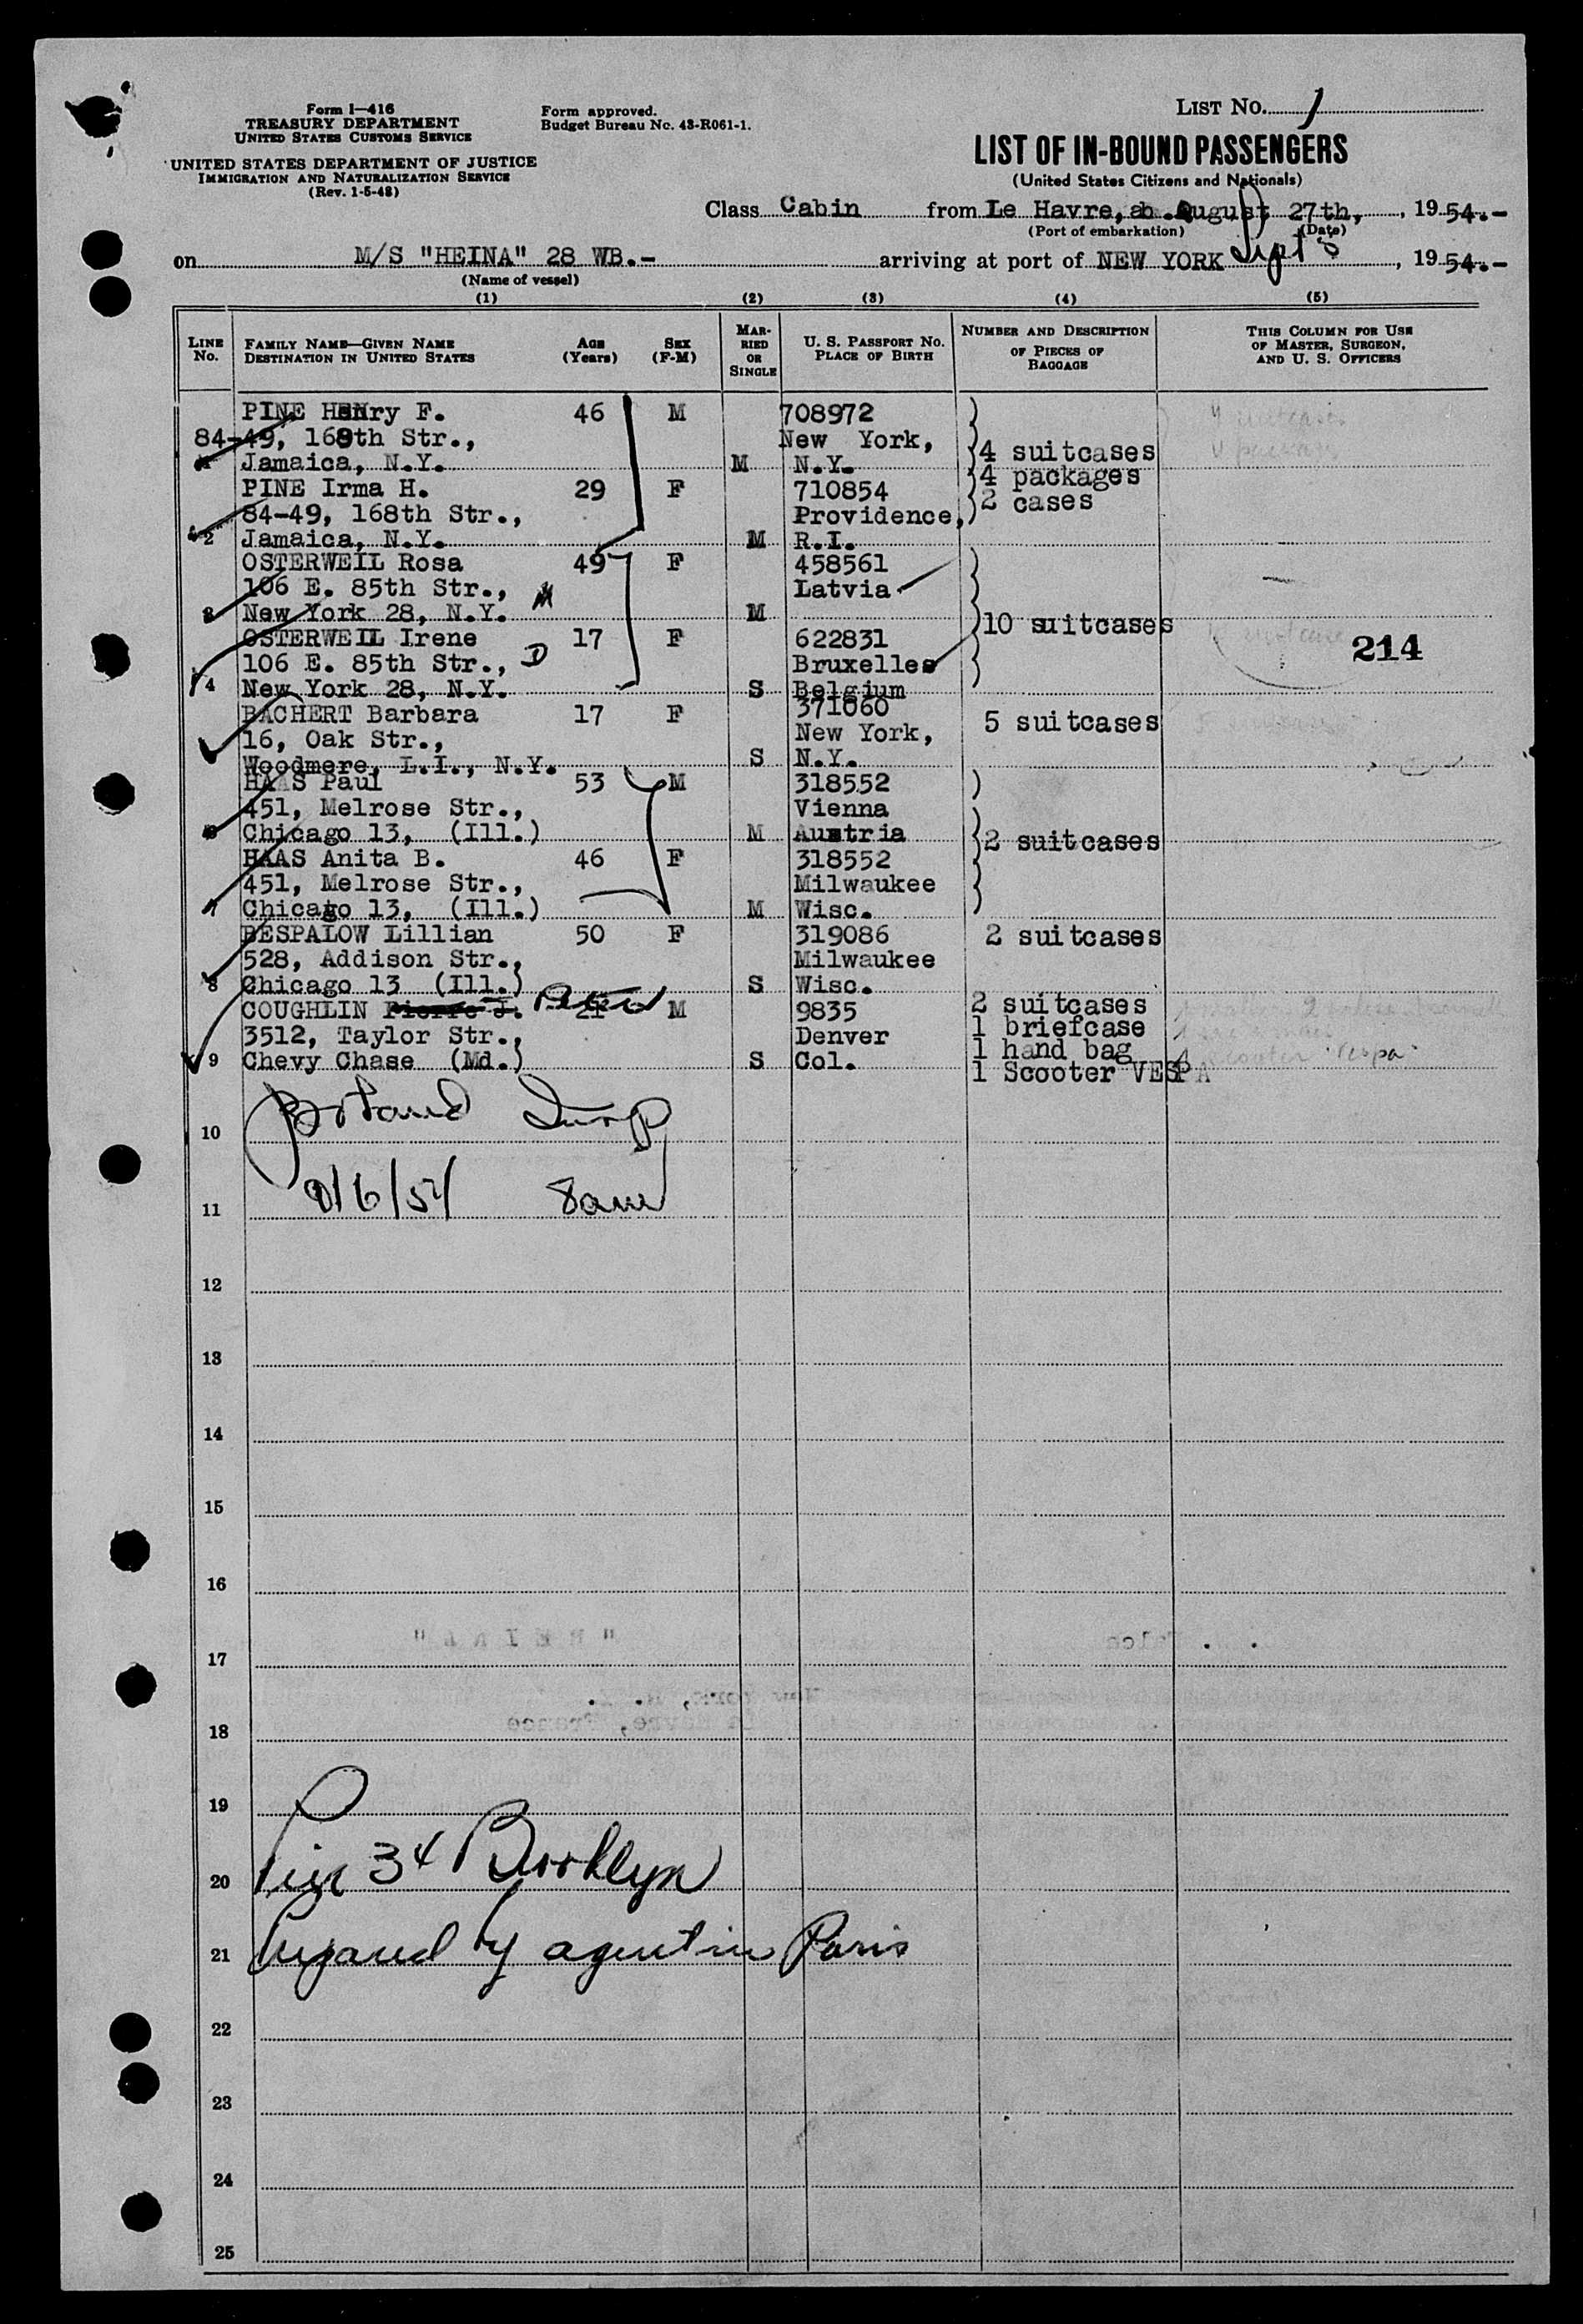 Form I—416
TREASURY DEPARTMENT
UNITED STATES CUSTOMS SERVICE
UNITED STATES DEPARTMENT OF JUSTICE
IMMIGRATION AND NATURALIZATION SERVICE
(Rev. 1-5-48)
Form approved.
Budget Bureau No. 43-R061-1.
LIST NO. 1
LIST OF IN-BOUND PASSENGERS
(United States Citizens and Nationals)
Class Cabin from Le Havre, ab. August 27th, , 19 54.-
(Port of embarkation) (Date)
on M/S "HEINA" 28 WB.- arriving at port of NEW YORK Sept 5 , 19 54.-
(Name of vessel)
(1) (2) (3) (4) (5)
LINE No. FAMILY NAME—GIVEN NAME DESTINATION IN UNITED STATES AGE (Years) SEX (F-M) MARRIED OR SINGLE U. S. PASSPORT No. PLACE OF BIRTH NUMBER AND DESCRIPTION OF PIECES OF BAGGAGE THIS COLUMN FOR USE OF MASTER, SURGEON, AND U. S. OFFICERS
PINE Henry F. 46 M 708972
84-49, 168th Str., New York,
Jamaica, N.Y. M N.Y. 4 suitcases
PINE Irma H. 29 F 710854 4 packages
84-49, 168th Str., Providence, 2 cases
2 Jamaica, N.Y. M R.I.
OSTERWEIL Rosa 49 F 458561
106 E. 85th Str., M Latvia
3 New York 28, N.Y. M
OSTERWEIL Irene 17 F 622831 10 suitcases
106 E. 85th Str., D Bruxelles 214
4 New York 28, N.Y. S Belgium
BACHERT Barbara 17 F 371060 5 suitcases
16, Oak Str., New York,
Woodmere, L.I., N.Y. S N.Y.
HAAS Paul 53 M 318552
451, Melrose Str., Vienna
6 Chicago 13, (Ill.) M Austria 2 suitcases
HAAS Anita B. 46 F 318552
451, Melrose Str., Milwaukee
7 Chicago 13, (Ill.) M Wisc.
BESPALOW Lillian 50 F 319086 2 suitcases
528, Addison Str., Milwaukee
8 Chicago 13 (Ill.) S Wisc.
COUGHLIN Pierre J. Peter 21 M 9835 2 suitcases
3512, Taylor Str., Denver 1 briefcase
9 Chevy Chase (Md.) S Col. 1 hand bag
1 Scooter VESPA
10
9/6/54 8am
11
12
13
14
15
16
17
18
19
20 Pier 34 Brooklyn
21 Prepared by agent in Paris
22
23
24
25